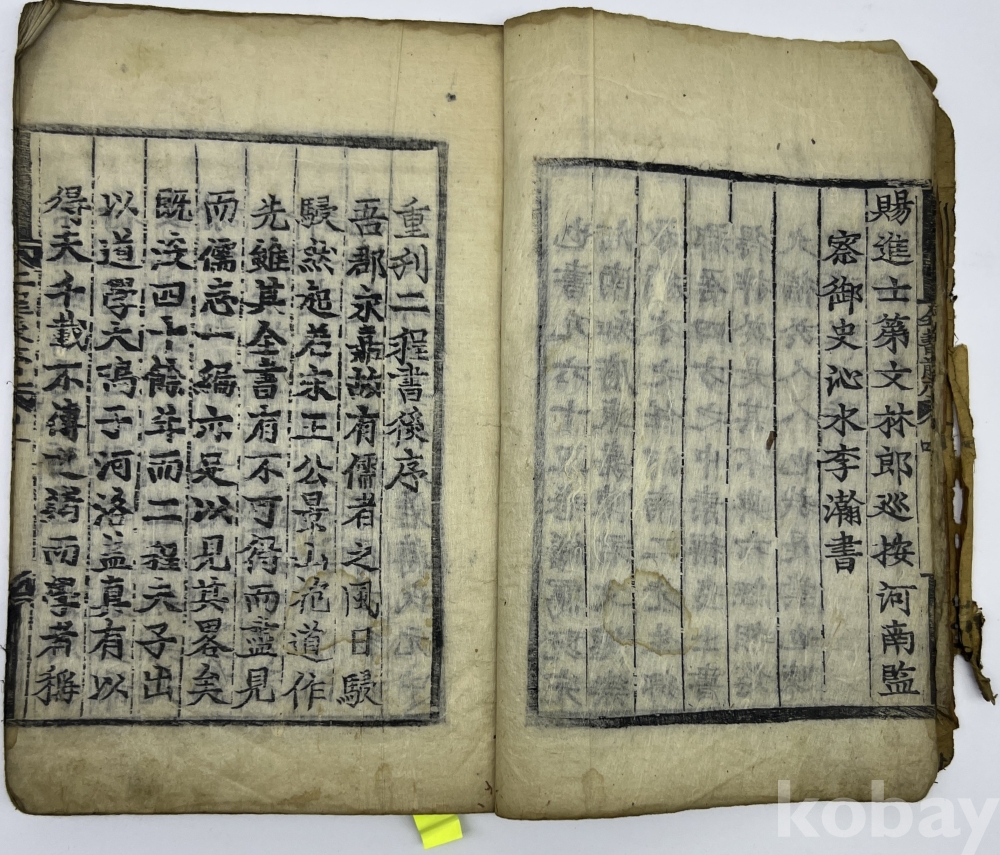 賜進士第文林郎巡按河南監
察御史沁水李瀚書
重刋二程書後序
吾郡永嘉故有儒者之風日駸
駸然起若宋王公景山范道作
先雖其全書有不可得而盡見
而儒志一編亦足以見其畧矣
既没四十餘年而二程夫子出
以道學大鳴于河洛盖真有以
得夫千載不傳之緒而學者稱
kobay